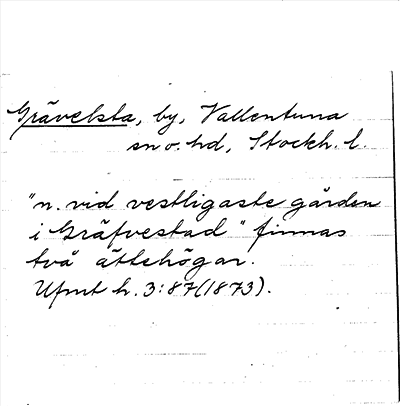 Grävelsta, by, Vallentuna
sn o. hd, Stockh. l.
"n. vid vestligaste gården
i Gräfvestad" finnas
två ättehögar.
Ufmt h. 3:87 (1873).